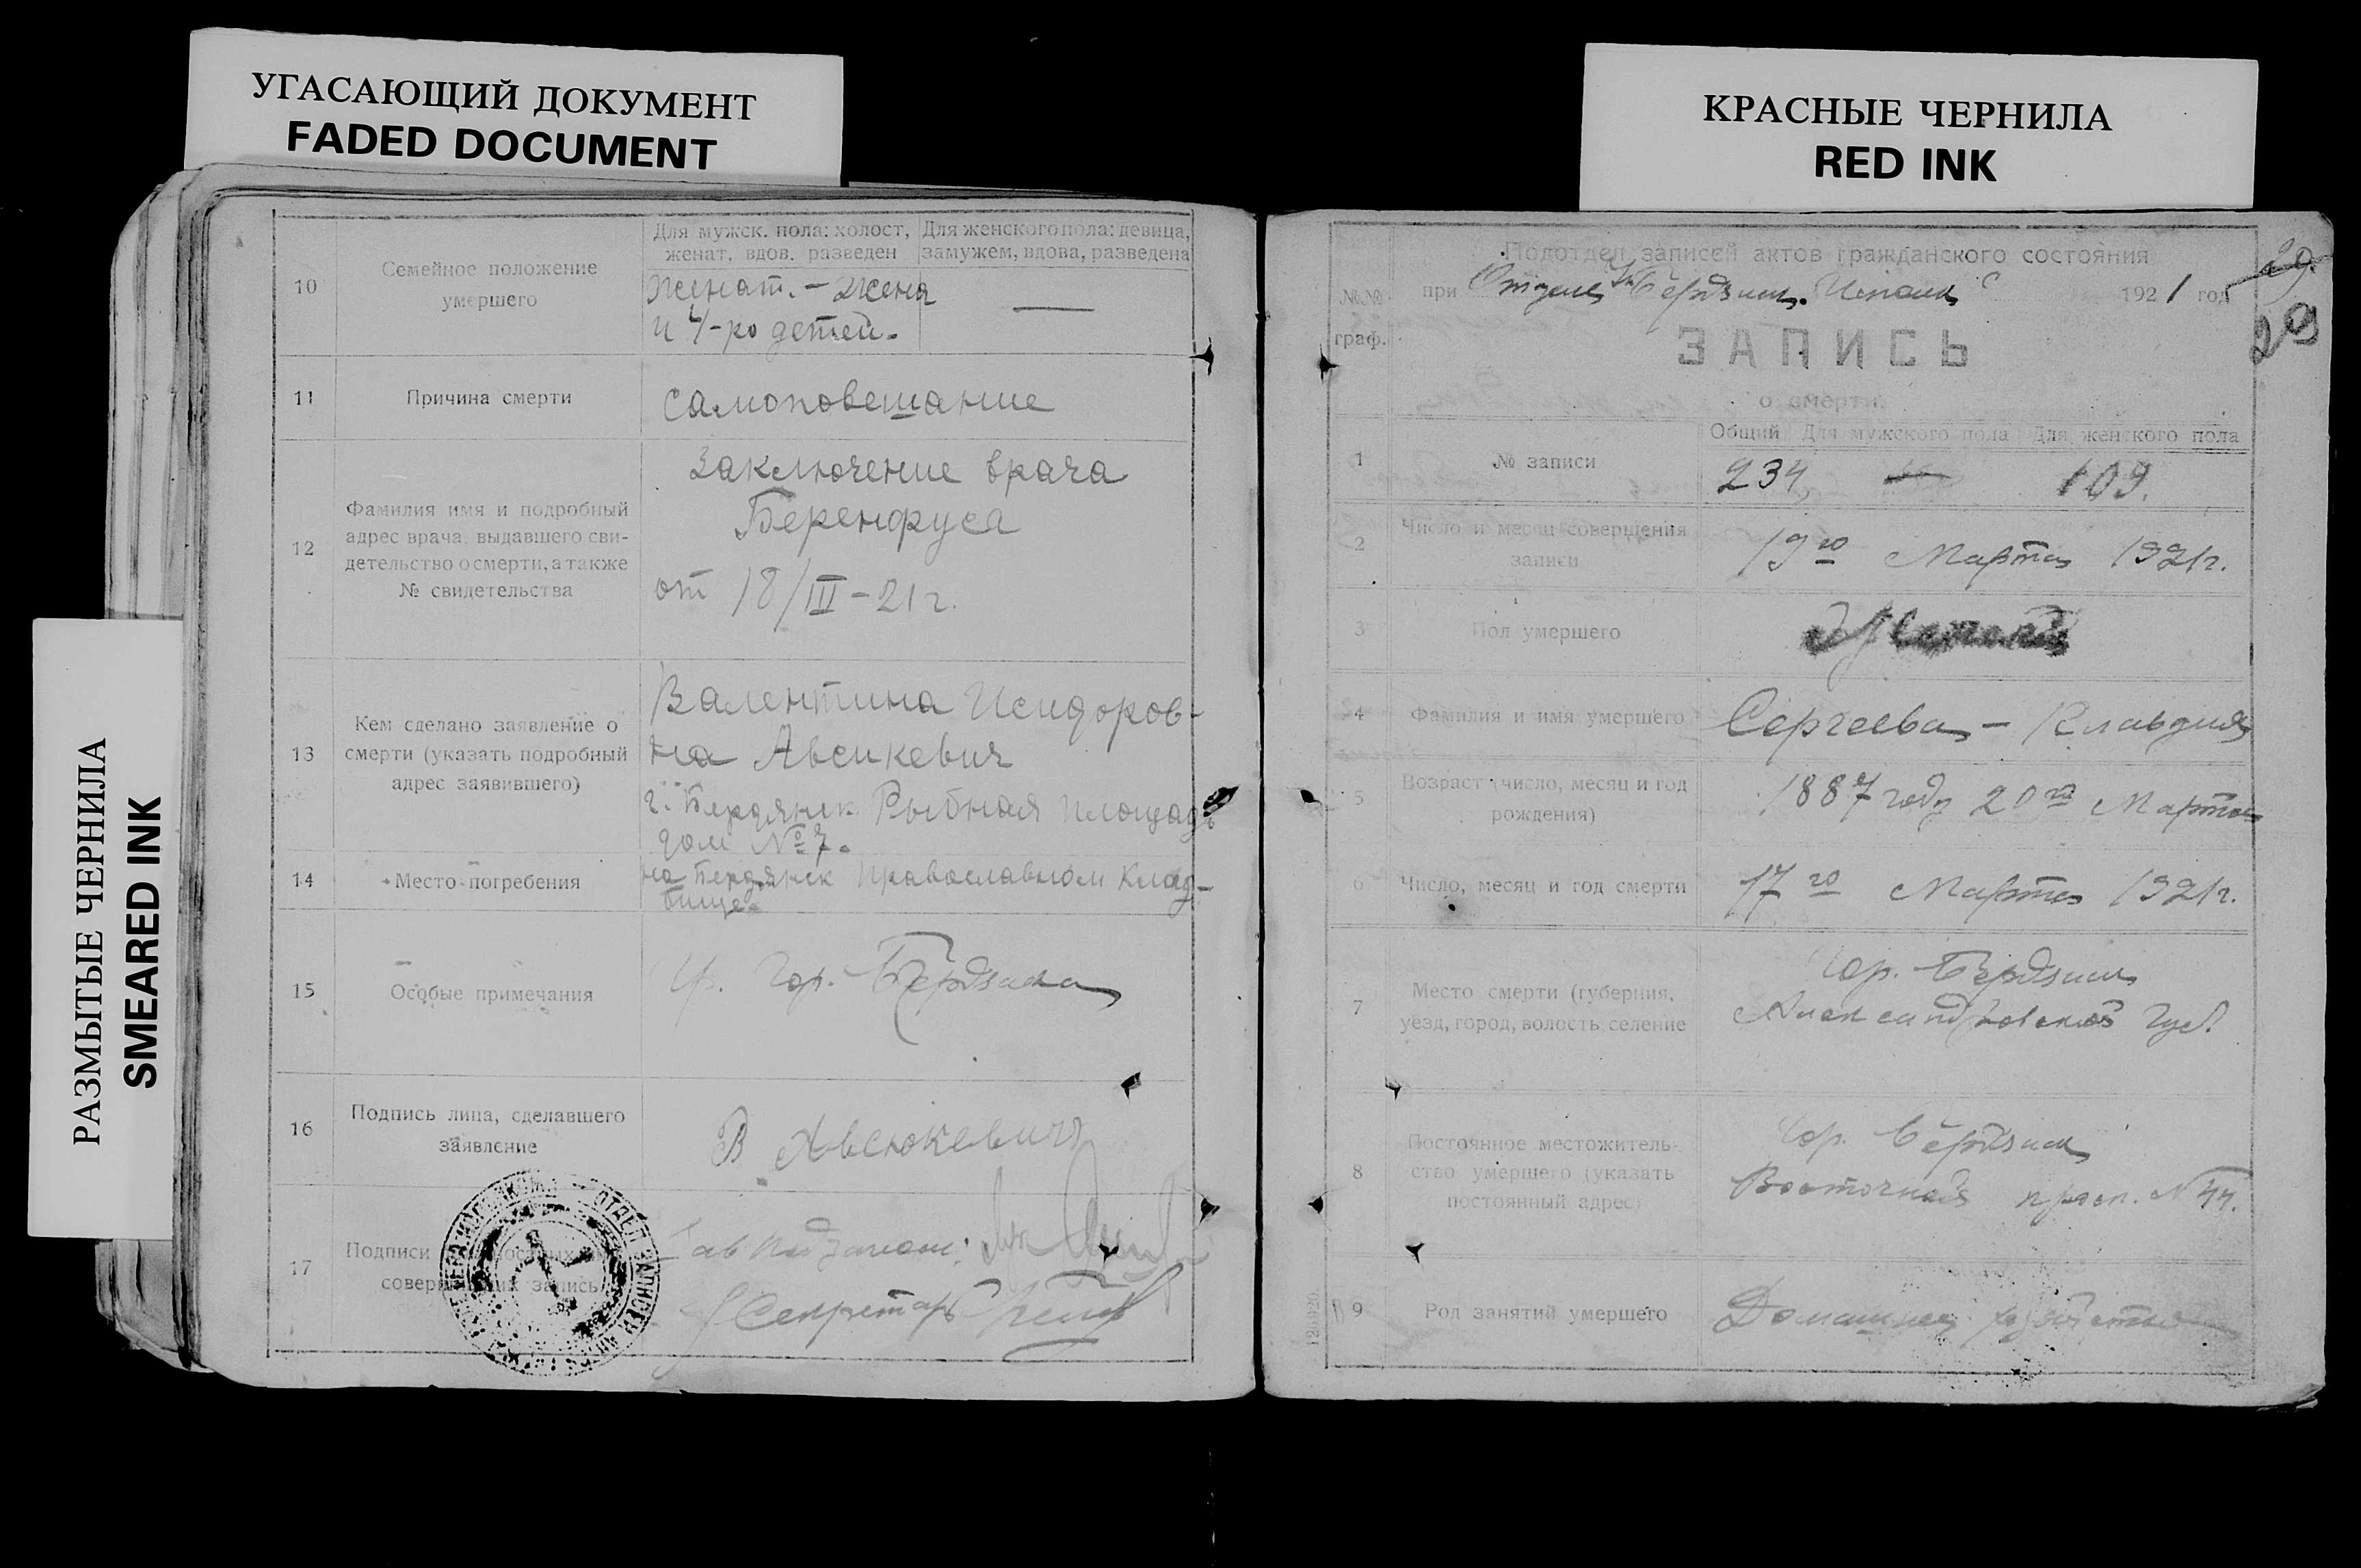 УГАСАЮЩИЙ ДОКУМЕНТ
FADED DOCUMENT
КРАСНЫЕ ЧЕРНИЛА
RED INK
РАЗМЫТЫЕ ЧЕРНИЛА
SMEARED INK
10
Семейное положение
умершего
Для мужск. пола: холост,
женат, вдов. разведен
Для женского пола: девица,
замужем, вдова, разведена
Женат. - Жена
и 4-ро детей.
—
11
Причина смерти
самоповешание
12
Фамилия имя и подробный
адрес врача, выдавшего сви-
детельство о смерти, а также
№ свидетельства
Заключение врача
Беренфуса
от 18/III - 21 г.
13
Кем сделано заявление о
смерти (указать подробный
адрес заявившего)
Валентина Исидоров-
на Авсюкевич
г. Бердянск Рыбная площадь
дом № 7.
14
Место погребения
на Бердянск православном Клад-
бище.
15
Особые примечания
Гр. Гор. Бердянска
16
Подпись лица, сделавшего
заявление
В Авсюкевич
17
Подписи
совершивших запись
Секретарь
Подотдел записей актов гражданского состояния
№№
граф.
при Отделе Бердянск. Исполк
1921 год
29
29
ЗАПИСЬ
о смерти
1
№ записи
Общий
Для мужского пола
Для женского пола
234
—
109.
2
Число и месяц совершения
записи
19го Марта 1921 г.
3
Пол умершего
Женский
4
Фамилия и имя умершего
Сергеева - Клавдия
5
Возраст (число, месяц и год
рождения)
1887 году 20го Марта
6
Число, месяц и год смерти
17го Марта 1921 г.
7
Место смерти (губерния,
уезд, город, волость, селение
Гор. Бердянск
Александровской губ.
8
Постоянное местожитель-
ство умершего (указать
постоянный адрес)
Гор. Бердянск
Восточный просп. № 44.
9
Род занятий умершего
Домашнее хозяйство